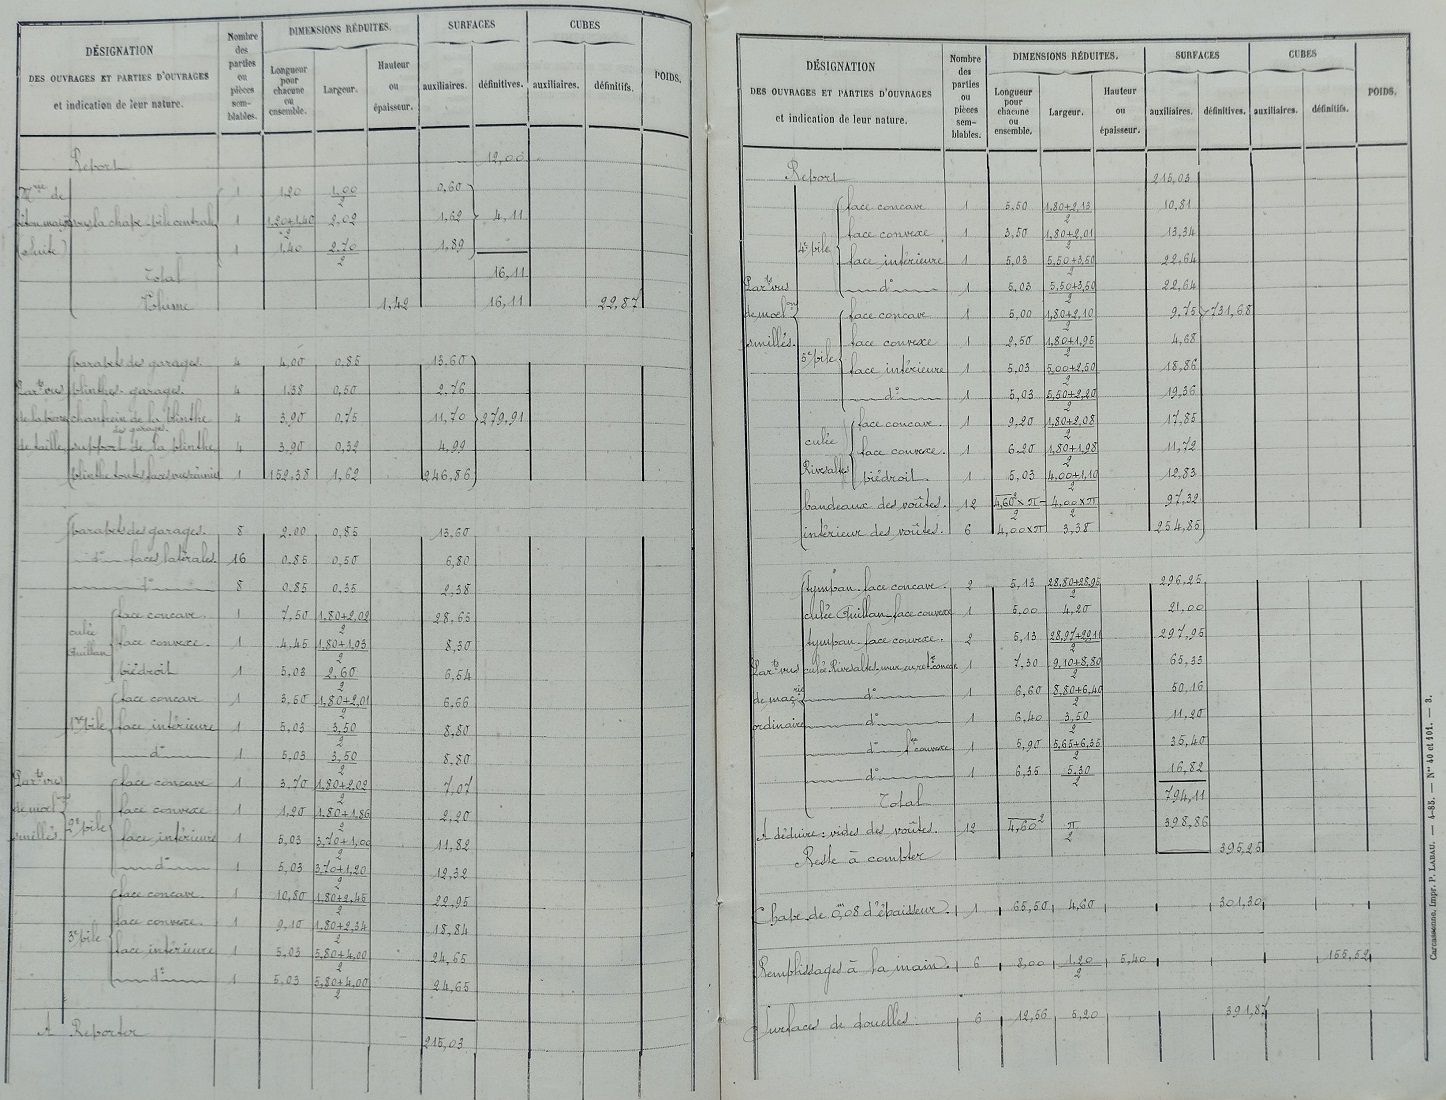 DÉSIGNATION DES OUVRAGES ET PARTIES D'OUVRAGES et indication de leur nature. | Nombre des parties ou pièces semblables. | DIMENSIONS RÉDUITES. Longueur pour chacune ou ensemble. | Largeur. | Hauteur ou épaisseur. | SURFACES auxiliaires. | définitives. | CUBES auxiliaires. | définitifs. | POIDS.
Report 12,00
Mrie de béton maigre (Suite)
1 1,20 1,00/2 0,60
sur la chape - pile centrale 1 1,20+1,40/2 2,02 1,62 4,11
1 1,40 2,70/2 1,89
Total 16,11
Volume 1,42 16,11 22,87
Par.ts vus de la pierre de taille
parapets des garages. 4 4,00 0,85 13,60
plinthes garages. 4 1,38 0,50 2,76
chanfrein de la plinthe des garages 4 3,90 0,75 11,70 279,91
support de la plinthe 4 3,90 0,32 4,99
plinthe toutes faces vues réunies 1 152,38 1,62 246,86
Par.ts vus de moel.ons smillés.
parapets des garages. 8 2,00 0,85 13,60
do faces latérales. 16 0,85 0,50 6,80
do 8 0,85 0,35 2,38
culée Quillan
face concave. 1 7,50 1,80+2,02/2 28,65
face convexe. 1 4,45 1,80+1,93/2 8,30
piédroit 1 5,03 2,60/2 6,54
1re pile
face concave 1 3,50 1,80+2,01/2 6,66
face intérieure 1 5,03 3,50/2 8,80
do 1 5,03 3,50/2 8,80
2e pile
face concave 1 3,70 1,80+2,02/2 7,07
face convexe 1 1,20 1,80+1,86/2 2,20
face intérieure 1 5,03 3,70+1,00/2 11,82
do 1 5,03 3,70+1,20/2 12,32
3e pile
face concave. 1 10,80 1,80+2,45/2 22,95
face convexe. 1 9,10 1,80+2,34/2 18,84
face intérieure 1 5,03 5,80+4,00/2 24,65
do 1 5,03 5,80+4,00/2 24,65
A Reporter 215,03
DÉSIGNATION DES OUVRAGES ET PARTIES D'OUVRAGES et indication de leur nature. | Nombre des parties ou pièces semblables. | DIMENSIONS RÉDUITES. Longueur pour chacune ou ensemble. | Largeur. | Hauteur ou épaisseur. | SURFACES auxiliaires. | définitives. | CUBES auxiliaires. | définitifs. | POIDS.
Report 215,03
Par.ts vus de moel.ons smillés.
4e pile
face concave 1 5,50 1,80+2,13/2 10,81
face convexe 1 3,50 1,80+2,01/2 13,34
face intérieure 1 5,03 5,50+3,50/2 22,64
do 1 5,03 5,50+3,50/2 22,64
5e pile
face concave 1 5,00 1,80+2,10/2 9,75 731,68
face convexe 1 2,50 1,80+1,95/2 4,68
face intérieure 1 5,03 5,00+2,50/2 18,86
do 1 5,03 5,50+2,20/2 19,36
culée Rivesaltes
face concave. 1 9,20 1,80+2,08/2 17,85
face convexe. 1 6,20 1,80+1,98/2 11,72
piédroit. 1 5,03 4,00+1,10/2 12,83
bandeaux des voûtes. 12 4,60²×π/2 - 4,00×π/2 97,32
intérieur des voûtes. 6 4,00×π 3,38 254,85
Par.ts vus de maçrie ordinaire
tympan face concave. 2 5,13 28,80+28,95/2 296,25
culée Quillan face convexe 1 5,00 4,20 21,00
tympan face convexe. 2 5,13 28,97+29,11/2 297,95
culée Rivesaltes mur en ret. fce concave 1 7,30 9,10+8,80/2 65,33
do 1 6,60 8,80+6,40/2 50,16
do 1 6,40 3,50/2 11,20
do fce convexe 1 5,90 5,65+6,35/2 35,40
do 1 6,35 5,30/2 16,82
Total 794,11
A déduire : vides des voûtes. 12 4,60² π/2 398,86
Reste à compter 395,25
Chape de 0m,08 d'épaisseur. 1 65,50 4,60 301,30
Remplissages à la main. 6 8,00 1,20/2 5,40 155,52
Surfaces de douelles 6 12,56 5,20 391,87
Carcassonne, Impr. P. LABAU. — 4-85. — Nos 40 et 101. — 3.